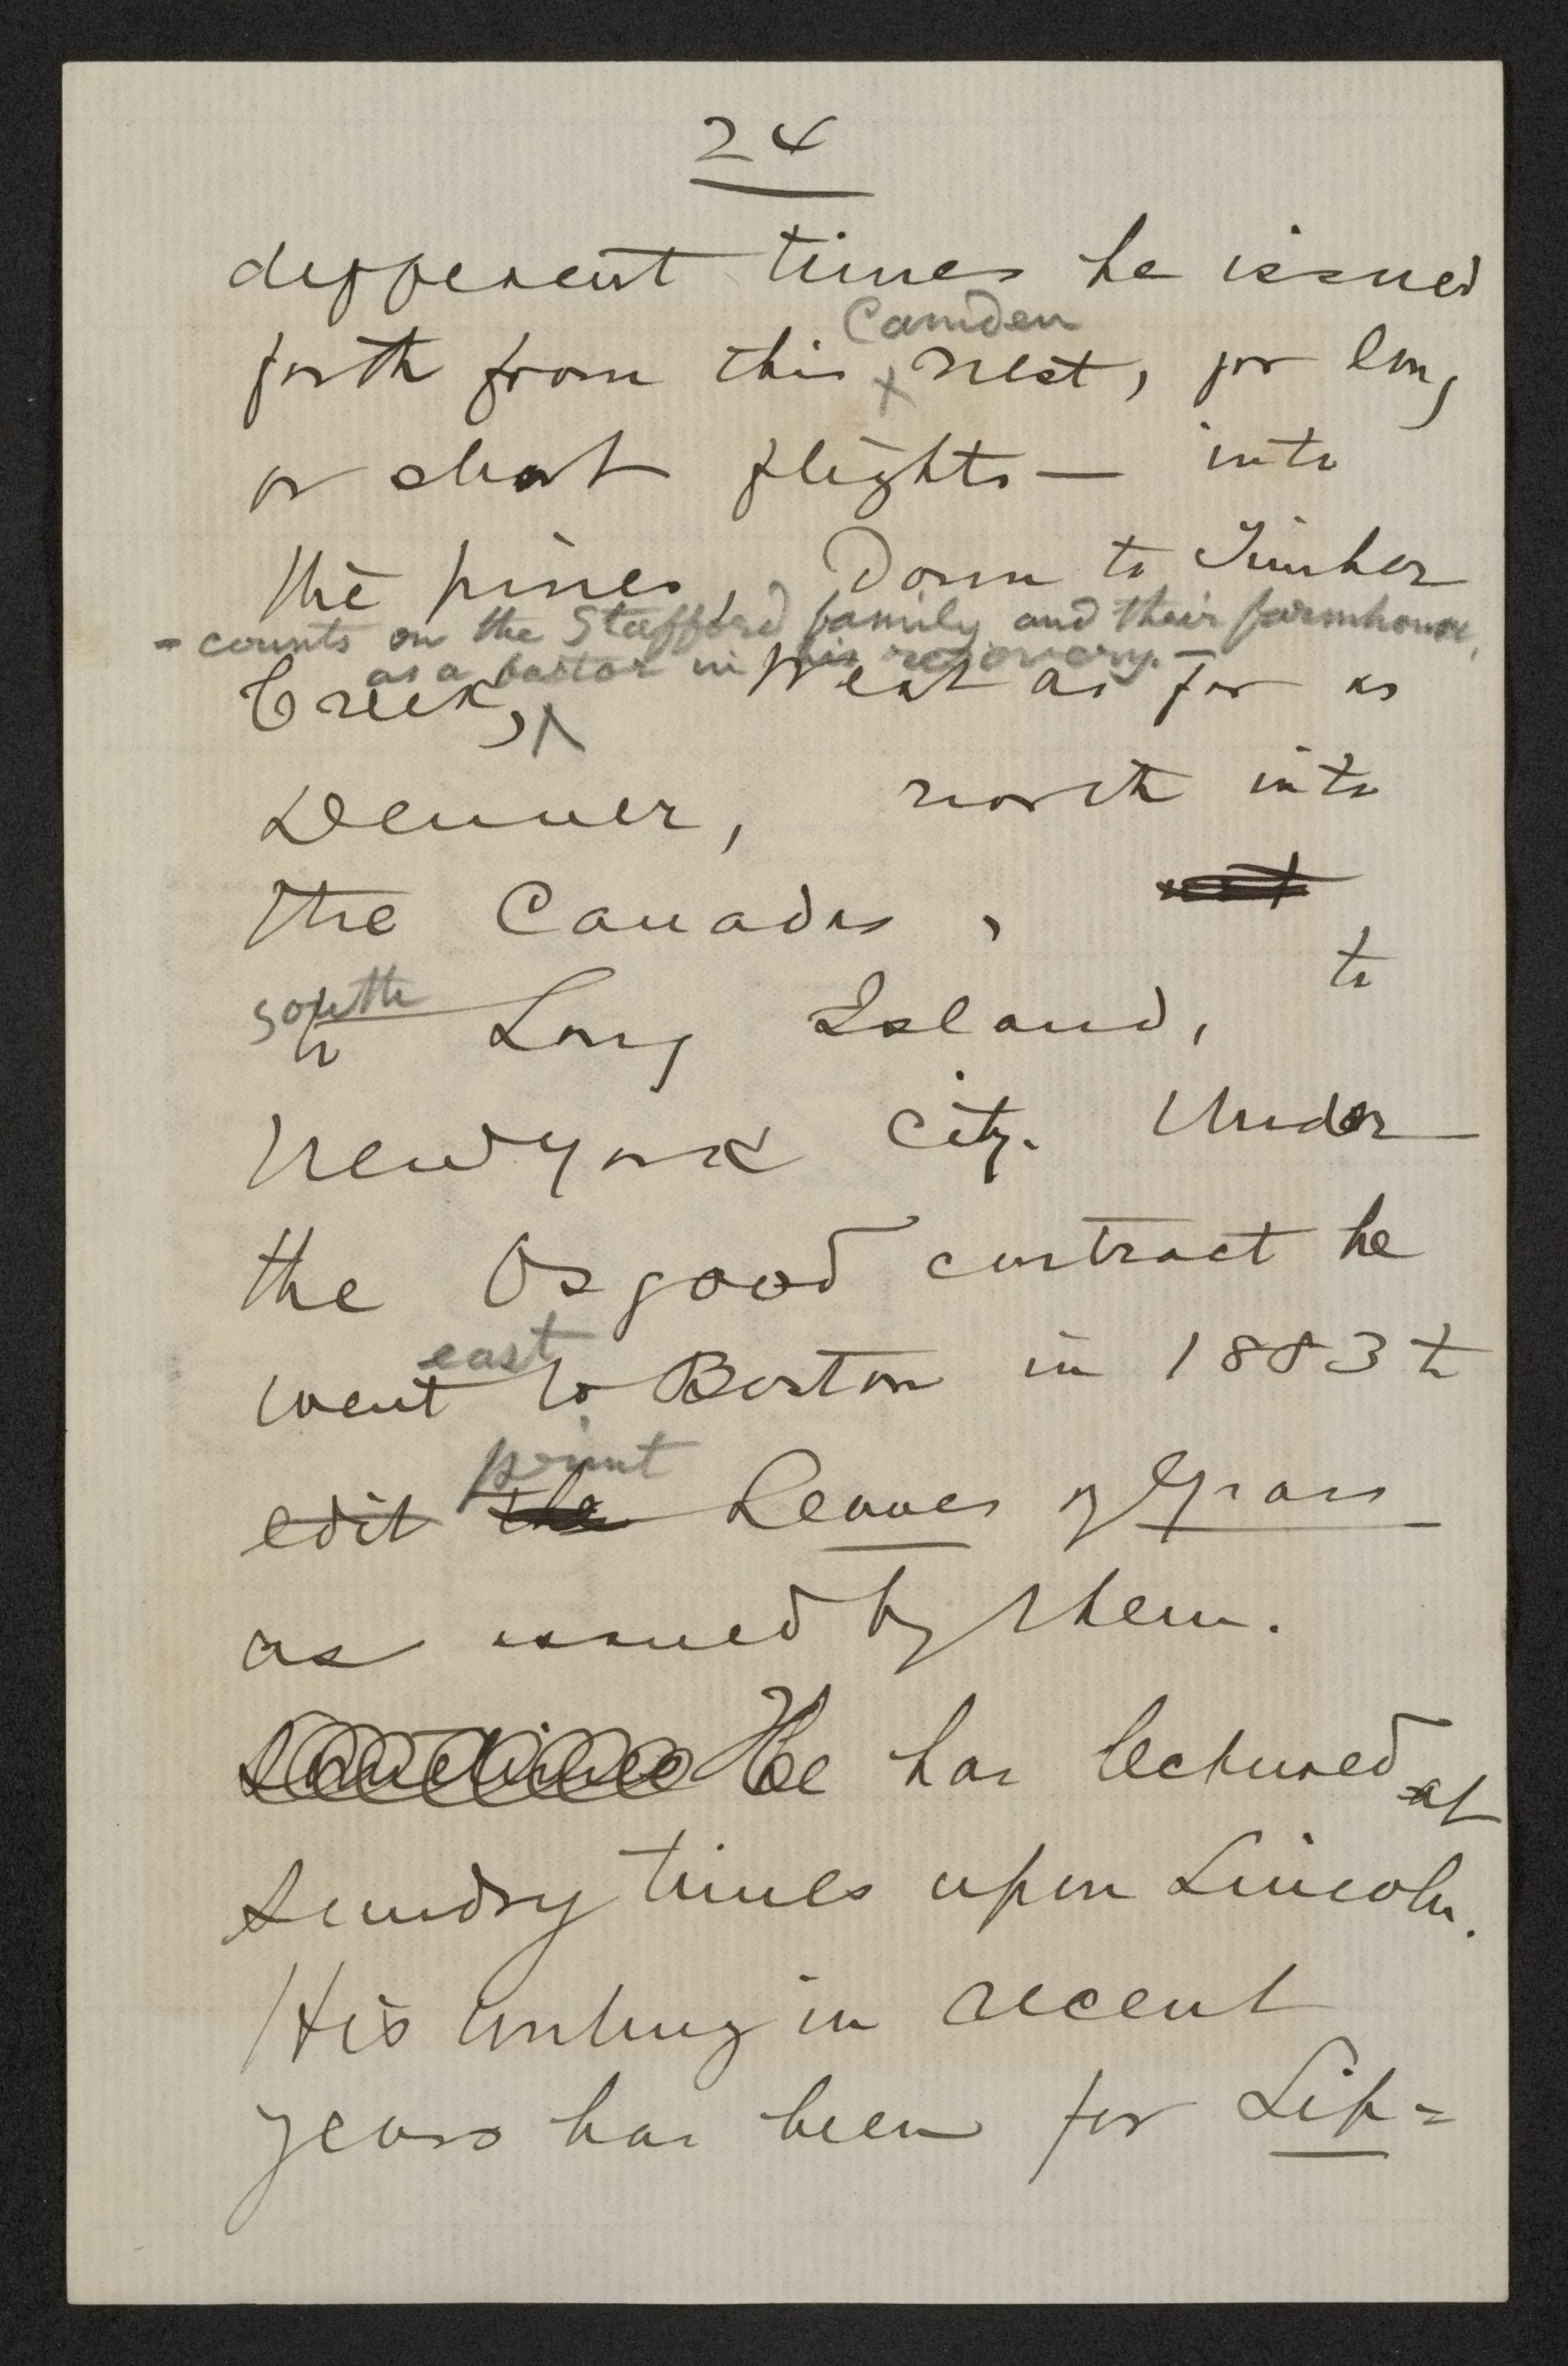 24
different times he issued
Camden
forth from this nest, for long
or short flights — into
the pines, Down to Timber
- counts on the Stafford family and their farmhouse,
as a factor in his recovery. —
Creek, West as far as
Denver, north into
the Canadas,
to
south
to Long Island,
New York City. Under
the Osgood contract he
east
went to Boston in 1883 to
print
edit the Leaves of Grass
as issued by them.
Sometimes He has lectured at
sundry times upon Lincoln.
His writing in recent
years has been for Lip=